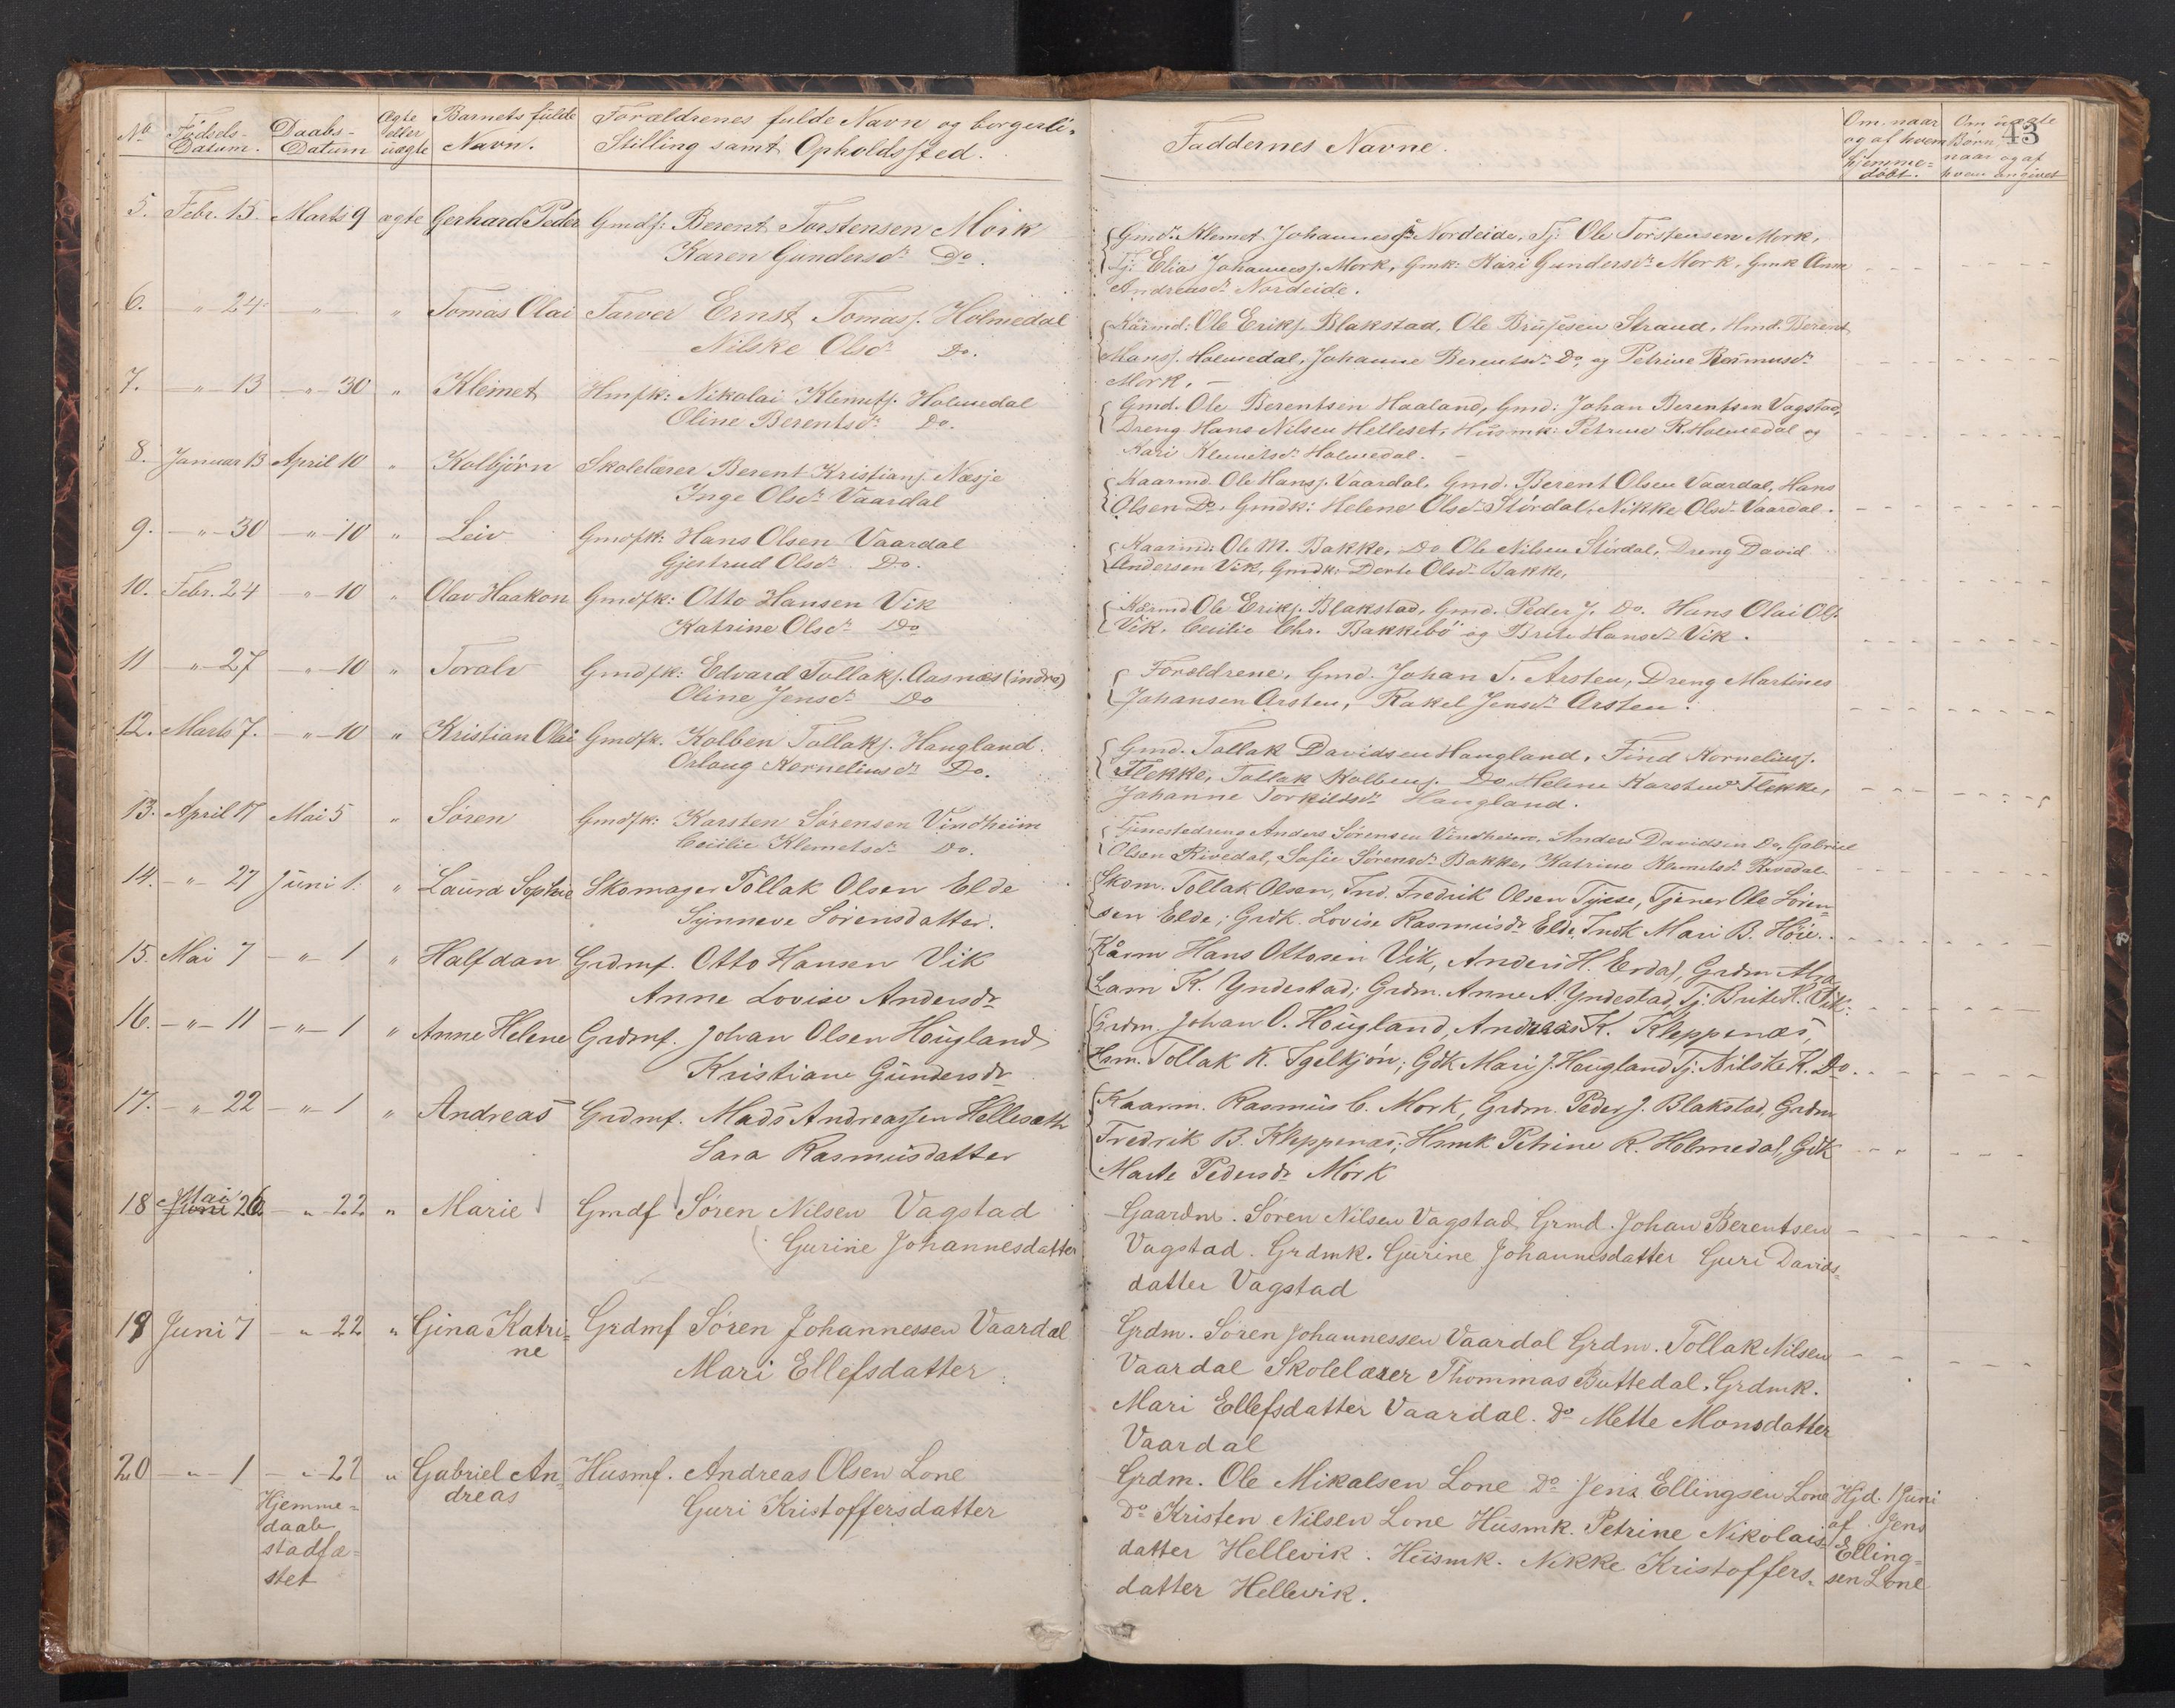 No. Fødsels-Datum. Daabs-Datum Ægte eller uægte Barnets fulde Navn. Forældrenes fulde Navn og borgerli. Stilling samt Opholdssted.
5. Febr. 15. Marts 9 ægte Gerhard Peder Gmdf: Berent Torstensen Mork
Karen Gundersdr. Do.
6. " 24 " " Tomas Olai Farver Ernst Tomass. Holmedal
Nilske Olsdr. Do.
7. " 13 " 30 " Klemet Hmfk: Nikolai Klemets. Holmedal
Oline Berentsdr. Do.
8. Januar 13 April 10 " Kolbjørn Skolelærer Berent Kristians. Næsje
Inge Olsdr. Vaardal
9. " 30 " 10 " Leiv Gmdfk: Hans Olsen Vaardal
Gjertrud Olsdr. Do.
10. Febr. 24 " 10 " Olav Haakon Gmdfk: Otto Hansen Vik
Katrine Olsdr. Do
11 " 27 " 10 " Toralv Gmdfk: Edvard Tollaks. Aasnæs (indre)
Oline Jensdr. Do
12. Marts 7. " 10 " Kristian Olai Gmdfk. Kolben Tollaks. Haugland.
Orlaug Korneliusdr. Do.
13. April 17 Mai 5 " Søren Gmdfk: Karsten Sørensen Vindheim
Cecilie Klemetsdr. Do.
14. " 27 Juni 1. " Laura Sophie Skomager Tollak Olsen Elde
Synneve Sørensdatter.
15. Mai 7 " 1 " Halfdan Grdmf. Otto Hansen Vik
Anne Lovise Andersdr.
16. " 11 " 1 " Anne Helene Grdmf. Johan Olsen Hougland
Kristiane Gundersdr.
17. " 22 " 1 " Andreas Grdmf. Mads Andreassen Hellesæth
Sara Rasmusdatter
18 Mai Juni 26 " 22 " Marie Gmdf Søren Nilsen Vagstad
Gurine Johannesdatter
19 Juni 7 " 22 " Gina Katri- Grdmf Søren Johannessen Vaardal
ne
Mari Ellefsdatter
20 " 1 " 22 " Gabriel An- Husmf. Andreas Olsen Lone
dreas
Guri Kristoffersdatter
Hjemme-
daab
stadfæ-
stet
Faddernes Navne.
Om, naar og af hvem hjemme-døbt.
Om uægte Børn, naar og af hvem angivet
43
Gmd. Klemet Johanness. Nordeide, Tj: Ole Torstensen Mork,
Tj: Elias Johanness. Mork, Gmk: Kari Gundersdr. Mork, Gmk Anne
Andreasdr. Nordeide.
Kårmd: Ole Eriks. Blakstad, Ole Strand, Hmd. Berent
Hans. Holmedal, Johanne Berentsdr. Do, og Petrine Rasmusdr.
Mork.
Gmd. Ole Berentsen Haaland, Gmd: Johan Berentsen Vagstad,
Dreng Hans Nilsen Helleset, Husmk: Petrine R. Holmedal og
Kari Klemetsdr. Holmedal.
Kaarmd. Ole Hanss. Vaardal, Gmd. Berent Olsen Vaardal, Hans
Olsen Do, Gmdk: Helene Olsdr. Størdal, Nikke Olsdr. Vaardal.
Kaarmd: Ole M. Bakke, Do Ole Nilsen Størdal, Dreng David
Andersen Vik, Gmdk: Dorte Olsdr. Bakke,
Kårmd Ole Eriks. Blakstad, Gmd. Peder J. Do. Hans Olai Ols.
Vik, Cecilie Chr. Bakkebø og Brite Hansdr. Vik.
Forældrene, Gmd. Johan T. Arsten, Dreng Martines
Johansen Arsten, Rakel Jensdr. Arsten.
Gmd. Tollak Davidsen Haugland, Find Korneliuss.
Flekke, Tollak Kolbens. Do, Helene Karstendr. Flekke,
Johanne Torkildsdr. Haugland.
Tjenestedreng Anders Sørensen Vindheim, Anders Davidsen Do, Gabriel
Olsen Rivedal, Sofie Sørensdr. Bakke, Katrine Klemetsdr. Rivedal.
Skom. Tollak Olsen, Ind. Fredrik Olsen Tysse, Tjener Ole Søren-
sen Elde; Grdk. Lovise Rasmusdr. Elde, Indk Mari B. Høie.
Kårm Hans Ottosen Vik, Anders H. Erdal, Grdm Abra-
ham K. Yndestad; Grdm. Anne A. Yndestad, Tj: Brite H. Vik.
Grdm. Johan O. Hougland, Andreas K. Kleppenæs,
Hsm. Tollak K. Igelkjøn; Gdk Mari J. Hougland Tj: Nilske K. Do.
Kaarm. Rasmus C. Mork, Grdm. Peder J. Blakstad, Grdm
Fredrik B. Kleppenæs; Hsmk Petrine R. Holmedal, Gdk
Marte Pedersdr. Mork
Gaardm. Søren Nilsen Vagstad Grmd. Johan Berentsen
Vagstad. Grdmk. Gurine Johannesdatter Guri Davids-
datter Vagstad
Grdm. Søren Johannessen Vaardal Grdm. Tollak Nilsen
Vaardal Skolelærer Thommas Buttedal. Grdmk.
Mari Ellefsdatter Vaardal. Do Mette Monsdatter
Vaardal
Grdm. Ole Mikalsen Lone Do Jens Ellingsen Lone Hjd. 1 Juni
Do Kristen Nilsen Lone Husmk. Petrine Nikolais- af Jens
datter Hellevik. Husmk. Nikke Kristoffers- Elling-
datter Hellevik. sen Lone